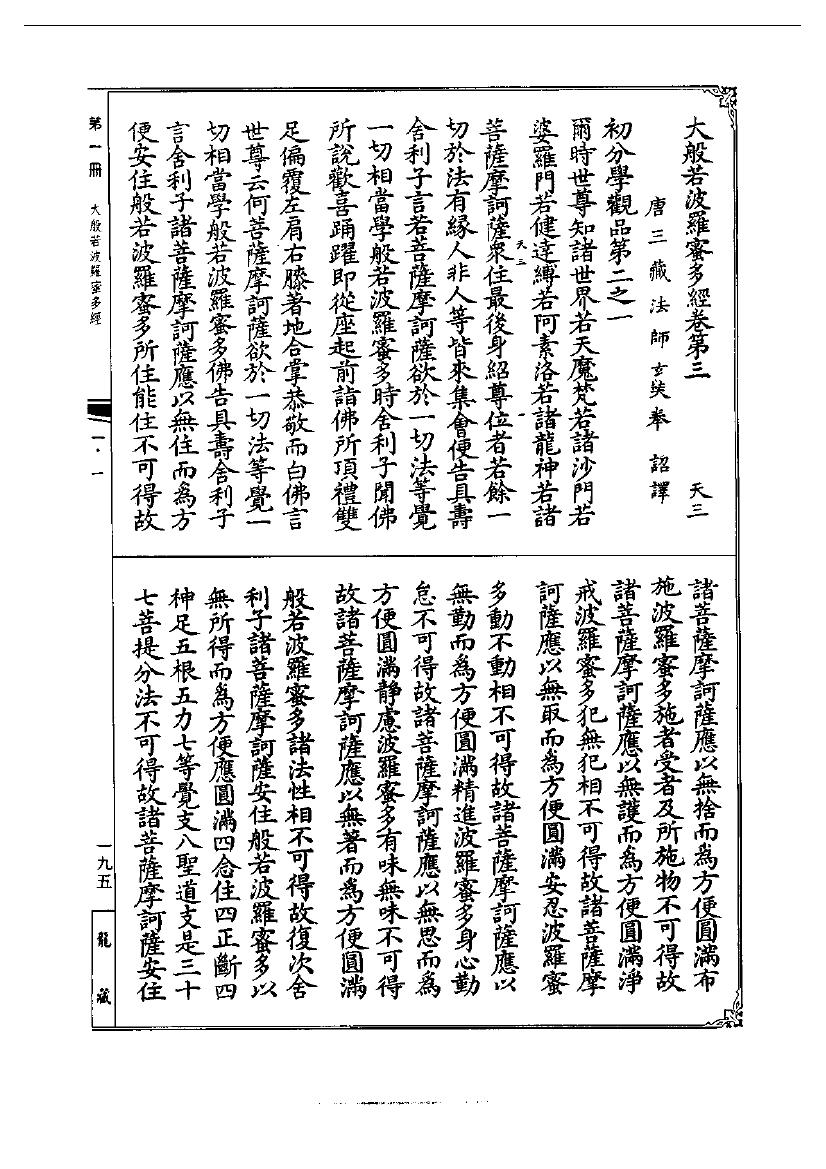 大般若波羅蜜多經卷第三 天三
唐三藏法師玄奘奉 詔譯
初分學觀品第二之一
爾時世尊知諸世界若天魔梵若諸沙門若
婆羅門若健達縛若阿素洛若諸龍神若諸
天三 一
菩薩摩訶薩衆住最後身紹尊位者若餘一
切於法有緣人非人等皆來集會便告具壽
舍利子言若菩薩摩訶薩欲於一切法等覺
一切相當學般若波羅蜜多時舍利子聞佛
所說歡喜踊躍即從座起前詣佛所頂禮雙
足偏覆左肩右膝著地合掌恭敬而白佛言
世尊云何菩薩摩訶薩欲於一切法等覺一
切相當學般若波羅蜜多佛告具壽舍利子
言舍利子諸菩薩摩訶薩應以無住而爲方
便安住般若波羅蜜多所住能住不可得故
諸菩薩摩訶薩應以無捨而爲方便圓滿布
施波羅蜜多施者受者及所施物不可得故
諸菩薩摩訶薩應以無護而爲方便圓滿淨
戒波羅蜜多犯無犯相不可得故諸菩薩摩
訶薩應以無取而爲方便圓滿安忍波羅蜜
多動不動相不可得故諸菩薩摩訶薩應以
無勤而爲方便圓滿精進波羅蜜多身心勤
怠不可得故諸菩薩摩訶薩應以無思而爲
方便圓滿靜慮波羅蜜多有味無味不可得
故諸菩薩摩訶薩應以無著而爲方便圓滿
般若波羅蜜多諸法性相不可得故復次舍
利子諸菩薩摩訶薩安住般若波羅蜜多以
無所得而爲方便應圓滿四念住四正斷四
神足五根五力七等覺支八聖道支是三十
七菩提分法不可得故諸菩薩摩訶薩安住
第一冊 大般若波羅蜜多經
一·一
一九五
龍藏